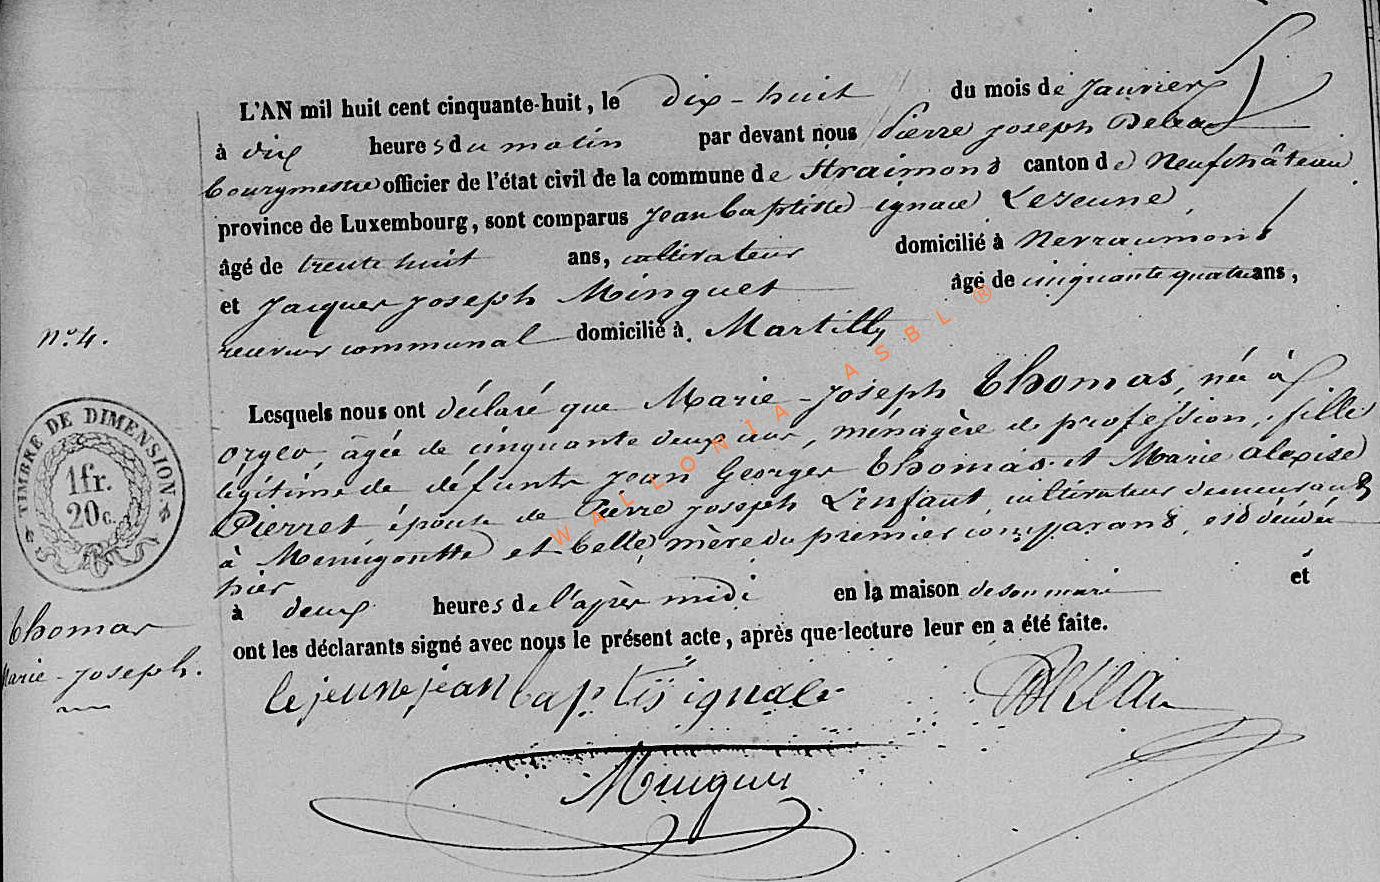 L'AN mil huit cent cinquante-huit, le dix-huit du mois de Janvier
à dix heures du matin par devant nous Pierre Joseph
bourgmestre officier de l'état civil de la commune de Straimont canton de Neufchâteau
province de Luxembourg, sont comparus Jean baptiste ignace Lejeune,
âgé de trente huit ans, cultivateur domicilié à Nevraumont
et Jacques Joseph Minguet âgé de cinquante quatre ans,
receveur communal domicilié à Martilly
n°. 4.
Lesquels nous ont déclaré que Marie-Joseph Thomas, née à
orgeo, âgée de cinquante deux ans, ménagère de profession, fille
légitime de défunts Jean Georges Thomas et Marie alexise
Pierret épouse de Pierre Joseph L'enfant, cultivateur demeurant
à Menugoutte et belle mère du premier comparant, est décédée
hier
à deux heures de l'après midi en la maison de son mari et
ont les déclarants signé avec nous le présent acte, après que lecture leur en a été faite.
TIMBRE DE DIMENSION
1 fr.
20 c.
Thomas
Marie-Joseph.
lejeune jean baptis ignace
Minguet
WALLONIA ASBL ®